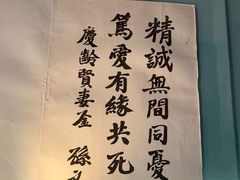 精誠無間同憂
篤愛有緣共死
慶齡賢妻鉴
孫